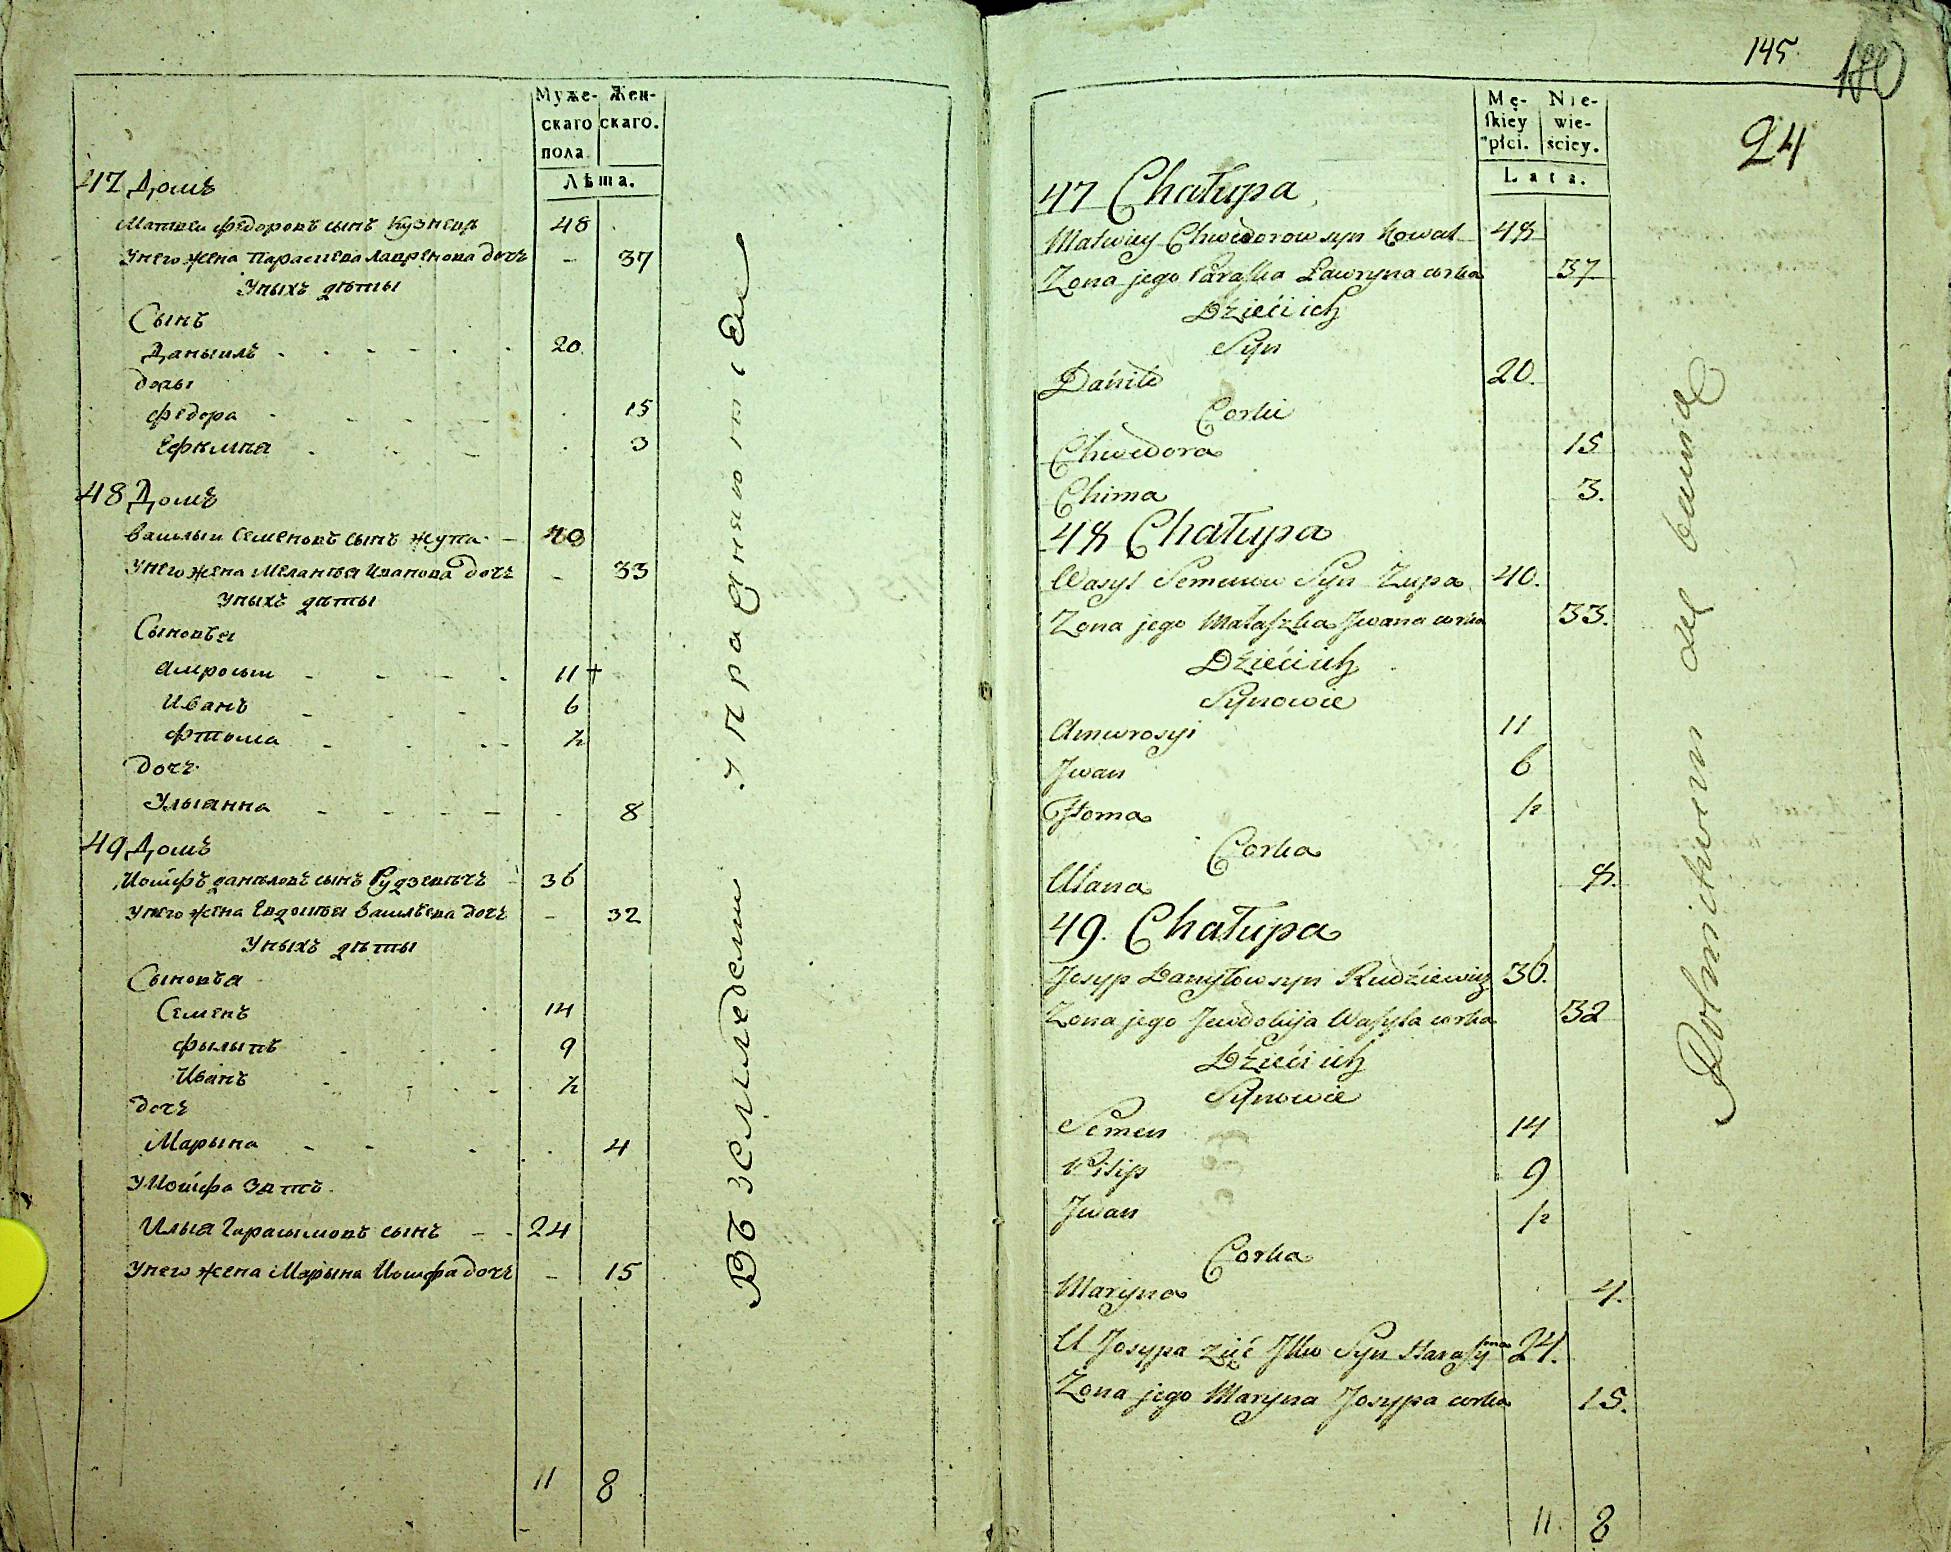 Муже- Жен-
скаго скаго.
пола.
Лѣта.
47 Домъ
Матвеи Федоровъ сынъ Кузнецъ 48
Унего жена Параскева Лавренова дочь - 37
Уныхъ дѣты
Сынъ
Даныилъ 20
дочы
Федора 15
Ефимиа 3
48 Домъ
Василыи Семеновъ сынъ Жупа 40
Унего жена Меланья Иванова дочь - 33
Уныхъ дѣты
Сыновъя
Амросыи 11 +
Иванъ 6
Фтома ½
дочь
Улыанна 8
49 Домъ
Иосифъ даниловъ сынъ Рудзевичъ 36
Унего жена Евдокиа Васильева дочь - 32
Уныхъ дѣты
Сыновъя
Семенъ 14
Филыпъ 9
Иванъ ½
дочь
Марына 4
У Иосифа зять
Илыа Гарасымовъ сынъ 24
Унего жена Марына Иосифа дочь - 15
11 8
Въ земледелии упражняютсiеся
145
24
Mę- Nie-
skiey wie-
płci. ściey.
Lata.
47 Chałupa
Matwiey Chwedorow syn Kowal 48
Zona jego Paraska Ławryna corka 37
Dzieci ich
Syn
Daniło 20.
Corki
Chwedora 15
Chima 3.
48 Chałupa
Wasyl Semenow Syn Zupa 40.
Zona jego Małaszka Jwana corka 33.
Dzieci ich
Synowie
Amwrosyi 11
Jwan 6
Htoma ½
Corka
Ulana 8.
49. Chałupa
Josyp Danyłow syn Rudziewicz 36.
Zona jego Jewdokija Wasyla corka 32
Dzieci ich
Synowie
Semen 14
Filip 9
Jwan ½
Corka
Maryna 4.
U Josypa zięć Jlko Syn Harasyma 24.
Zona jego Maryna Josypa corka 15.
11. 8